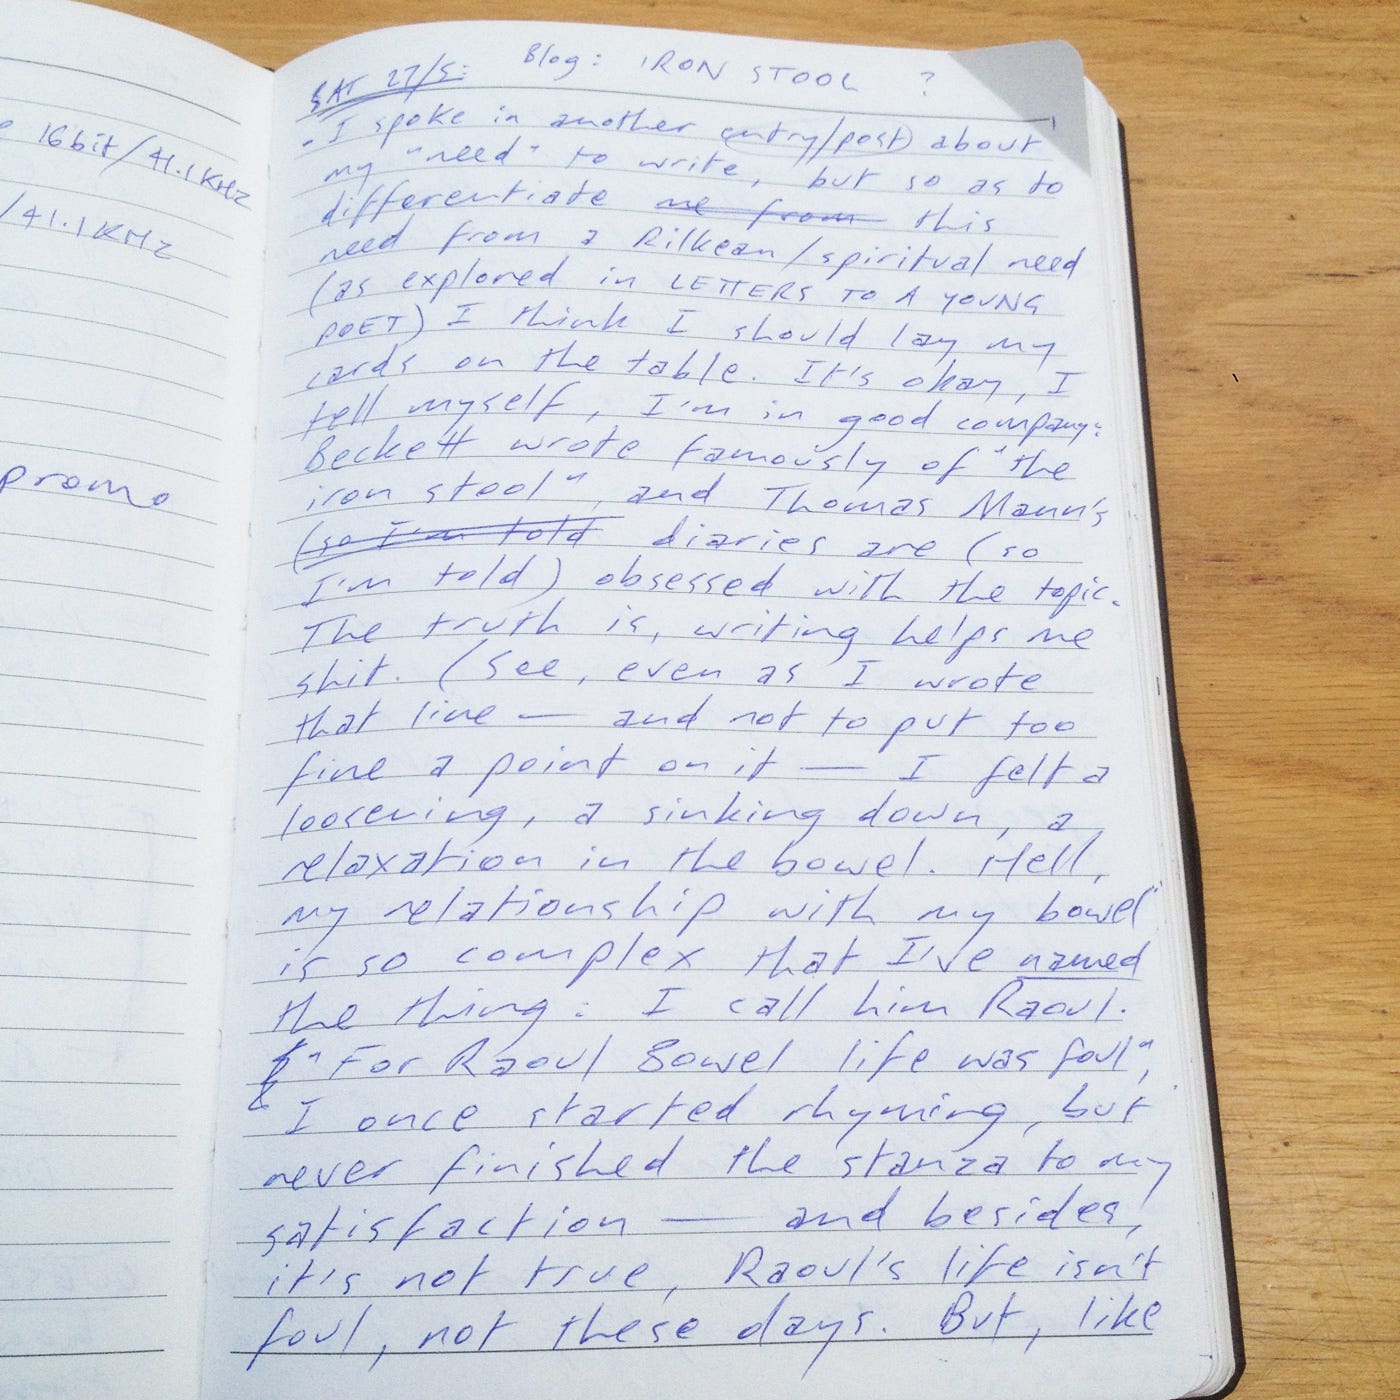 16bit/41.1KHz
/41.1KHz
promo
Blog: IRON STOOL ?
SAT 27/5:
I spoke in another entry/post) about
my "need" to write, but so as to
differentiate me from this
need from a Rilkean/spiritual need
(as explored in LETTERS TO A YOUNG
POET) I think I should lay my
cards on the table. It's okay, I
tell myself, I'm in good company:
Beckett wrote famously of "the
iron stool", and Thomas Mann's
(so I'm told diaries are (so
I'm told) obsessed with the topic.
The truth is, writing helps me
shit. (See, even as I wrote
that line — and not to put too
fine a point on it — I felt a
loosening, a sinking down, a
relaxation in the bowel. Hell,
my relationship with my bowel
is so complex that I've named
the thing: I call him Raoul.
"For Raoul Bowel life was foul",
I once started rhyming, but
never finished the stanza to my
satisfaction — and besides,
it's not true, Raoul's life isn't
foul, not these days. But, like